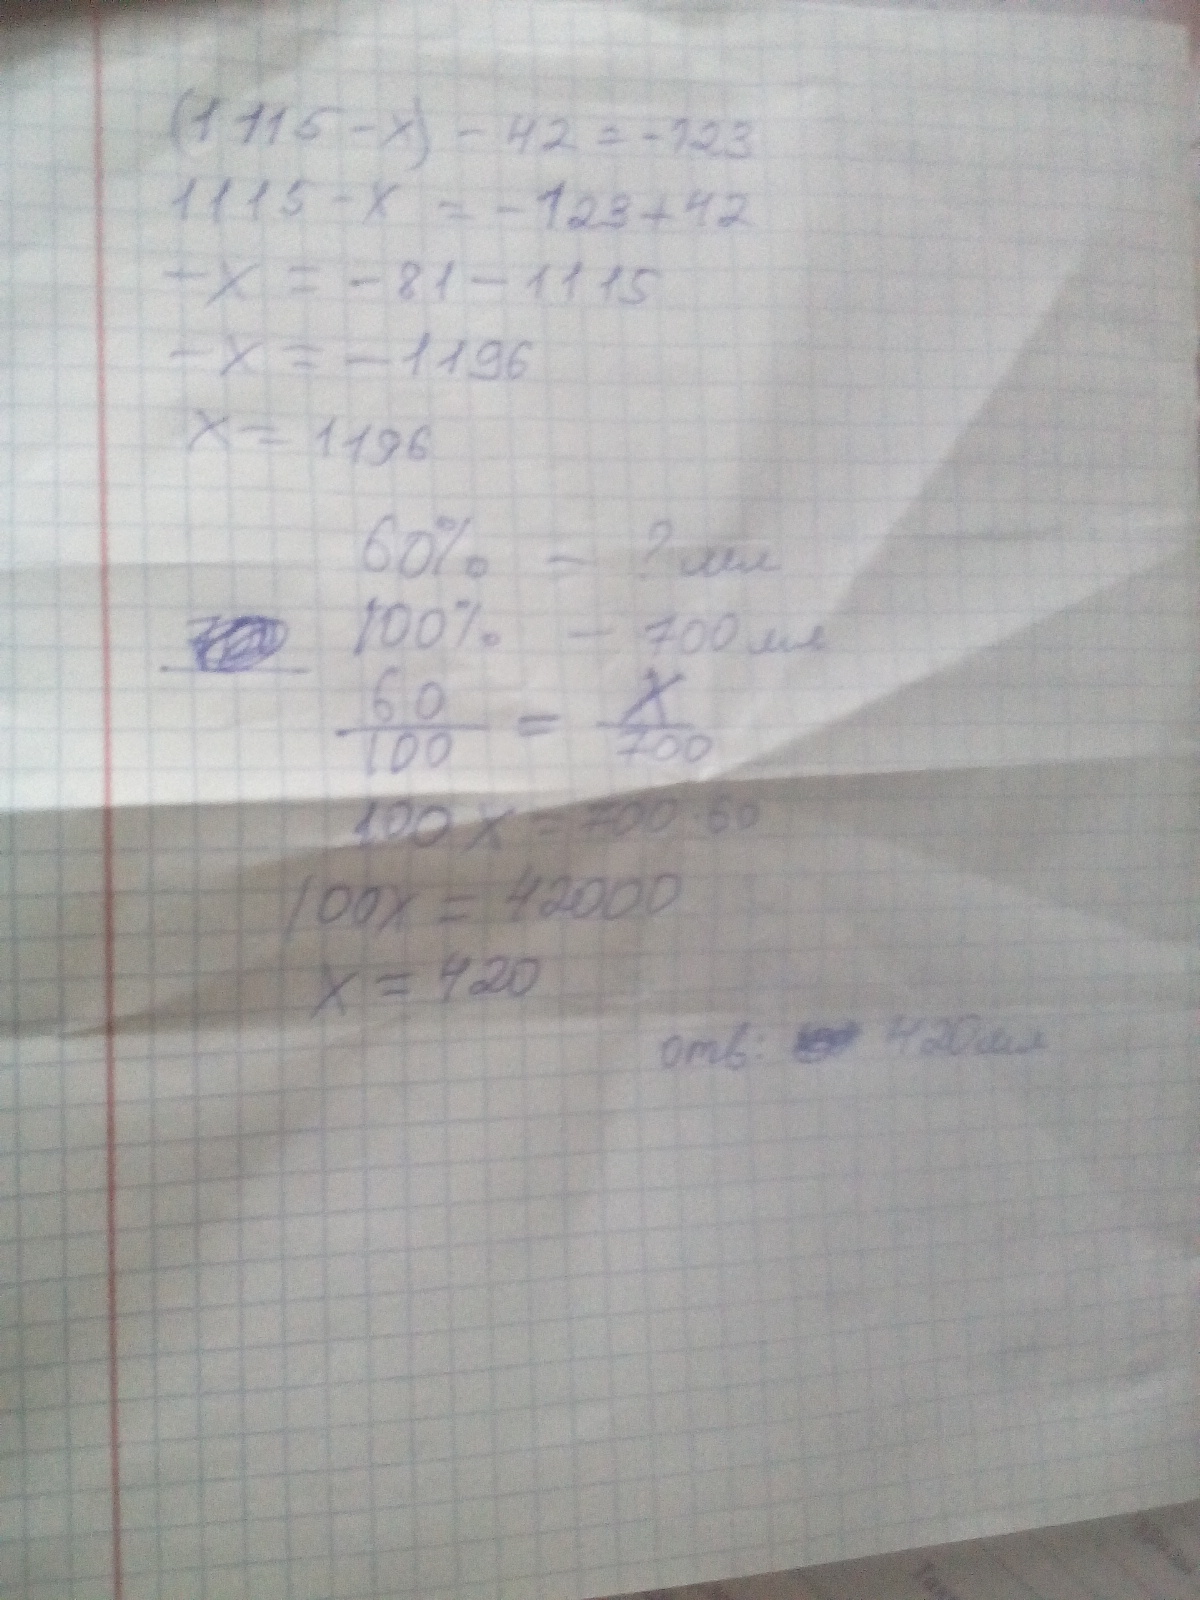 (1115-x)-42=-123
1115-x=-123+42
-x=-81-1115
-x=-1196
x=1196
60% - ? мл
100% - 700 мл
60/100 = x/700
100x=700·60
100x=42000
x=420
отв: 420мл